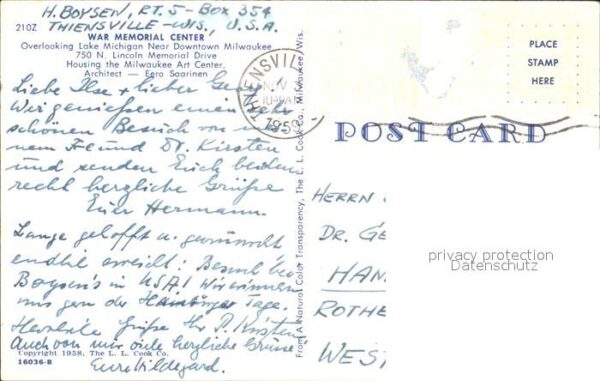 H. BOYSEN, RT. 5 - BOX 354
THIENSVILLE - WIS., U.S.A.
210Z
WAR MEMORIAL CENTER
Overlooking Lake Michigan Near Downtown Milwaukee
750 N. Lincoln Memorial Drive
Housing the Milwaukee Art Center.
Architect — Eero Saarinen
Liebe Ilse + lieber
Wir genießen einen sehr
schönen Besuch von
nem Freund Dr. Kirsten
und senden Euch beiden
recht herzliche Grüße
Euer Hermann.
Lange gehofft u. gewünscht
endlich erreicht: Besuch bei
Boysen's in USA! Wir erinnern
uns gern der Hamburger Tage.
Herzliche Grüße Ihr P. Kirsten
Auch von mir viele herzliche Grüße
Eure Hildegard.
Copyright 1958, The L. L. Cook Co.
16036-B
From A Natural Color Transparency, The L. L. Cook Co., Milwaukee, Wis.
THIENSVILLE
1959
PLACE
STAMP
HERE
POST CARD
HERRN
DR. GE
HAN
ROTHE
WEST
privacy protection
Datenschutz